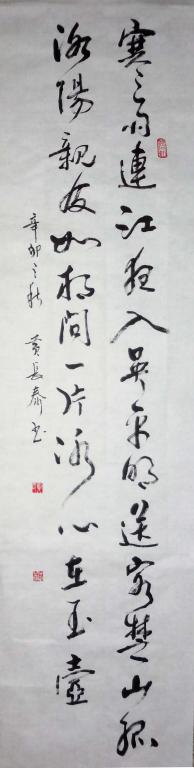 寒雨連江夜入吳平明送客楚山孤
洛陽親友如相問一片冰心在玉壺
辛卯之秋 黃長泰書